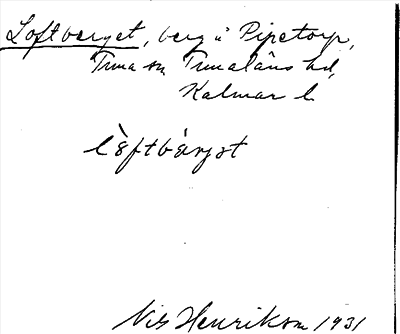 Loftberget, berg i Pipetorp,
Tuna sn Tunaläns hd,
Kalmar l.
lòftbärjət
Nils Henrikson 1931